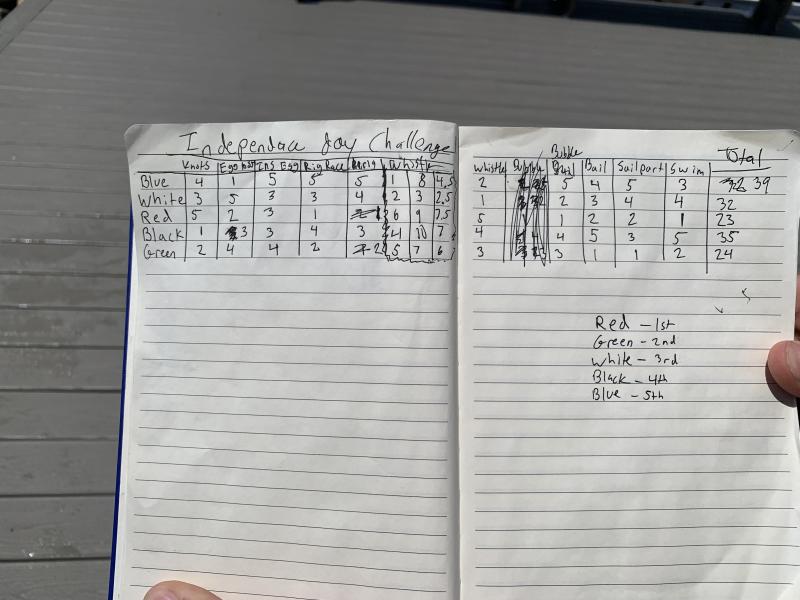 Independace Day Challenge
Knots Egg Ins Egg Rig Race Whistle
Blue 4 1 5 5 5 1 8 4.5
White 3 5 3 3 4 2 3 2.5
Red 5 2 3 1 1 6 9 7.5
Black 1 3 3 4 3 4 10 7
Green 2 4 4 2 2 5 7 6
Whistle Bubble Bail Sailpart Swim Total
2 5 4 5 3 39
1 2 3 4 4 32
5 1 2 2 1 23
4 4 5 3 5 35
3 3 1 1 2 24
Red - 1st
Green - 2nd
White - 3rd
Black - 4th
Blue - 5th